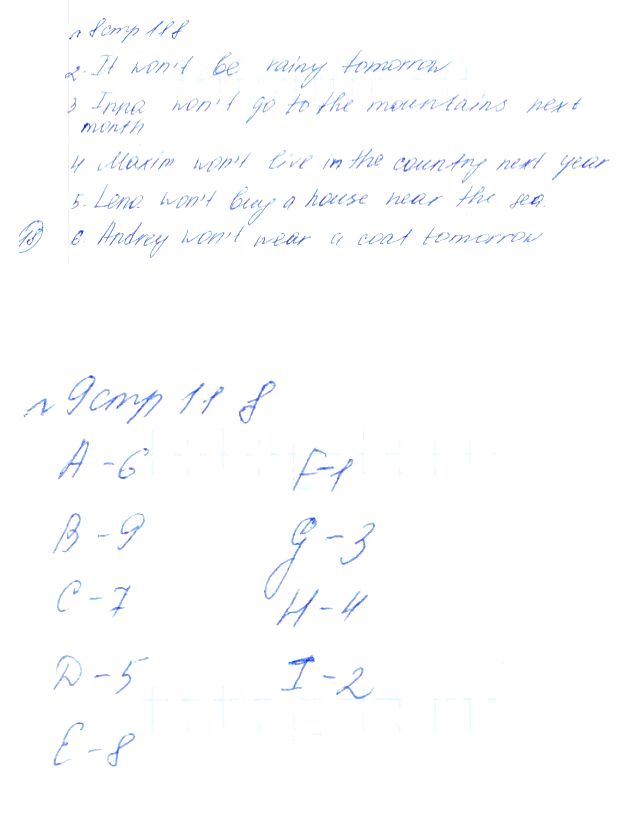 № 8 стр 118
2. It won't be rainy tomorrow
3 Inna won't go to the mountains next
month
4 Maxim won't live in the country next year
5. Lena won't buy a house near the sea
18) 6 Andrey won't wear a coat tomorrow
№ 9 стр 118
A - 6
F - 1
B - 9
G - 3
C - 7
H - 4
D - 5
I - 2
E - 8